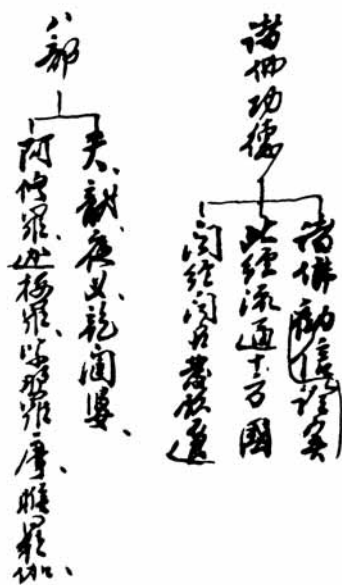 諸佛功德
諸佛勸信證實
此經流通十方國
聞經聞名發願退
八部
天、龍、夜叉、乾闥婆、
阿修羅、迦樓羅、緊那羅、摩睺羅伽、